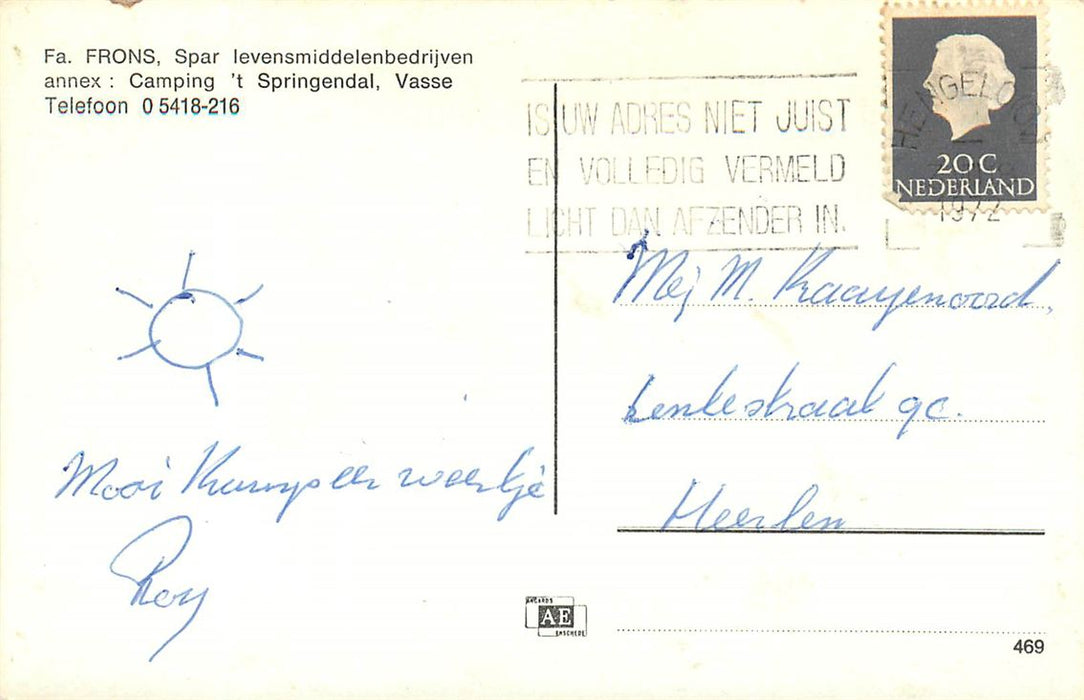 Fa. FRONS, Spar levensmiddelenbedrijven
annex : Camping 't Springendal, Vasse
Telefoon 0 5418-216
IS UW ADRES NIET JUIST
EN VOLLEDIG VERMELD
LICHT DAN AFZENDER IN.
HENGELO
1972
20 C
NEDERLAND
Mej M. Kaayenoord,
Lentestraat 9c.
Heerlen
Mooi Kampeer weertje
Roy
AE
ENSCHEDE
469